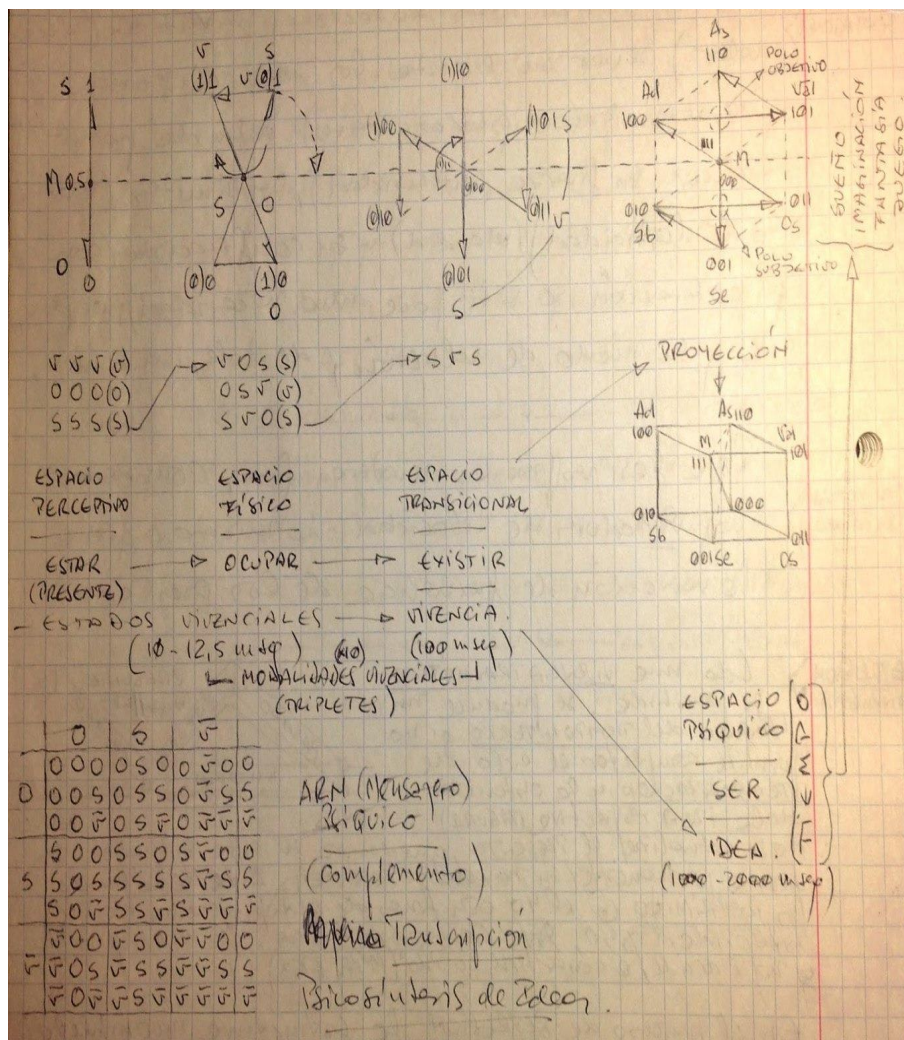 S 1
M 0.5
O
0
v
(1)1
S
v(0)1
A
S O
(0)0 (1)0
O
(1)10
(1)00 (1)01 S
000
(0)10 (0)11 v
(0)01
S
As
110
POLO
OBJETIVO
Ad
100
Val
101
111
M
000
010
Sb
011
Os
001
Se
POLO
SUBJETIVO
SUEÑO
IMAGINACIÓN
FANTASÍA
JUEGO
v v v (v) v O S (S) S v S
O O O (O) O S v (v)
S S S (S) S v O (S)
PROYECCIÓN
Ad
100
As 110
Val
101
M
111
000
010
Sb
001 Se
011
Os
ESPACIO ESPACIO ESPACIO
PERCEPTIVO FÍSICO TRANSICIONAL
ESTAR OCUPAR EXISTIR
(PRESENTE)
- ESTADOS VIVENCIALES VIVENCIA.
(10 - 12,5 mseg) (x10) (100 mseg)
MODALIDADES VIVENCIALES
(TRIPLETES)
ESPACIO
PSÍQUICO
SER
IDEA.
(1000 - 2000 mseg)
(TIEMPO)
O S v̄
O O O O S O O v̄ O O
O O O S O S S O v̄ S S
O O v̄ O S v̄ O v̄ v̄ v̄
S O O S S O S v̄ O O
S S O S S S S S v̄ S S
S O v̄ S S v̄ S v̄ v̄ v̄
v̄ O O v̄ S O v̄ v̄ O O
v̄ v̄ O S v̄ S S v̄ v̄ S S
v̄ O v̄ v̄ S v̄ v̄ v̄ v̄ v̄
ARN (Mensajero)
PSÍQUICO
(complemento)
Transcripción
Psicosíntesis de Ideas.